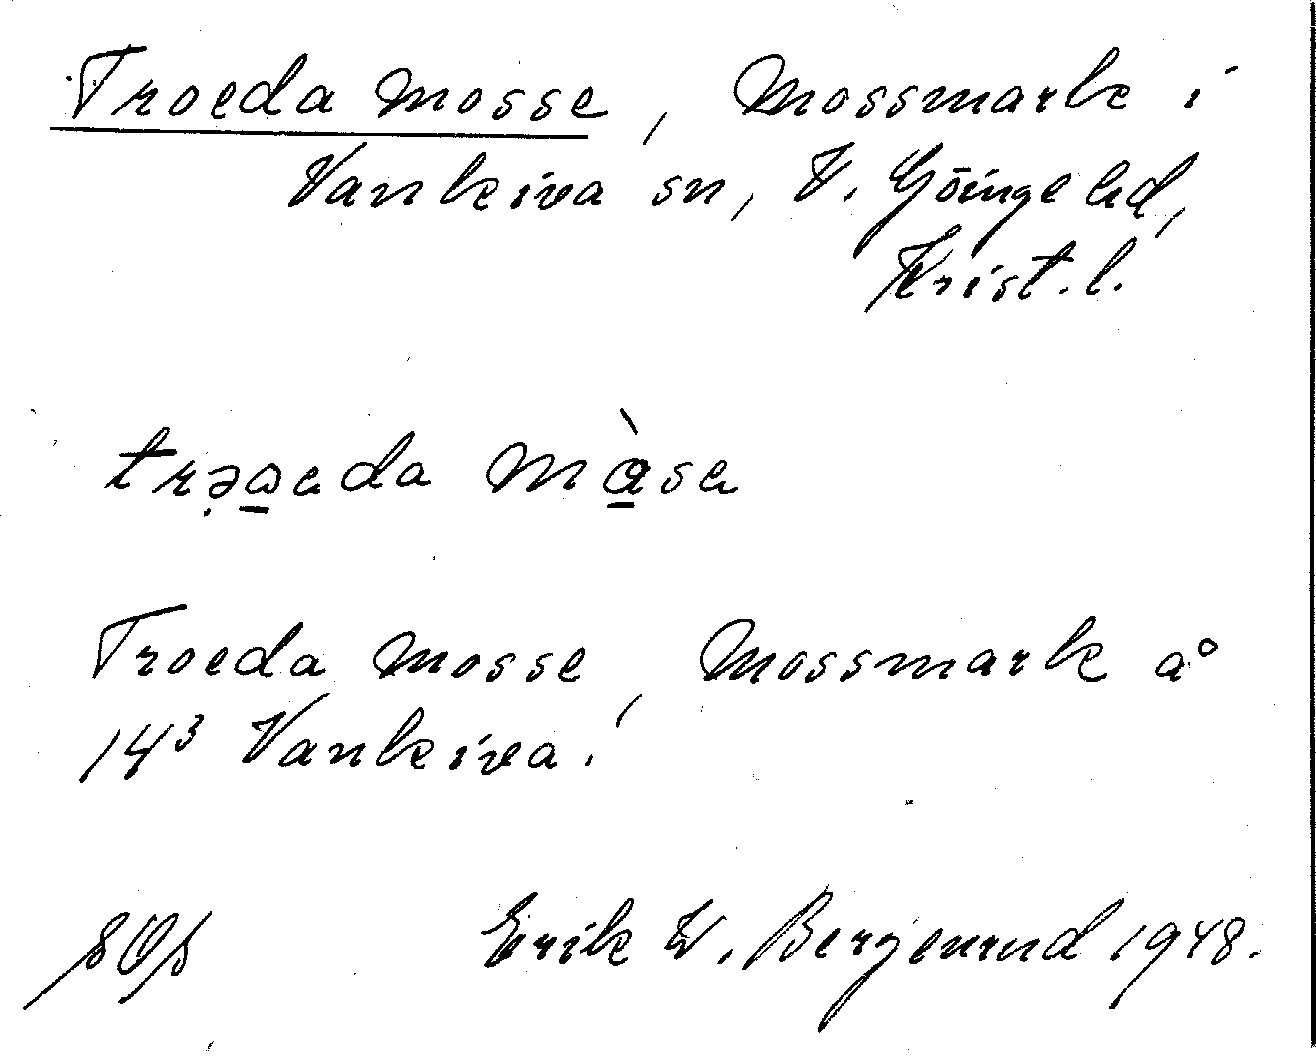 Troeda mosse, Mossmark i
Vankiva sn, V. Göinge hd,
Krist. l.
trə̣a̱eda mà̱sa
Troeda mosse, Mossmark å
14³ Vankiva.
Erik W. Bergenrud 1948.